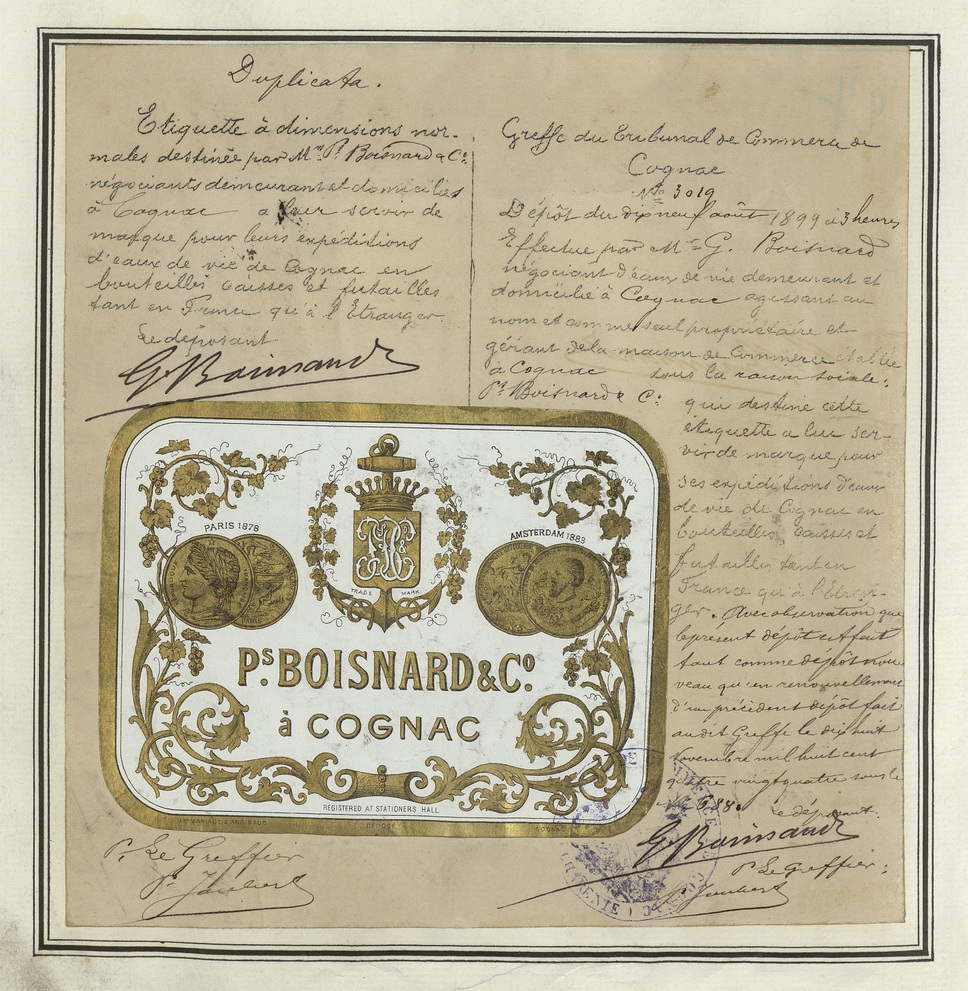 Duplicata.
Etiquette à dimensions nor-
males destinée par Mrs Ps Boisnard & Co
négociants demeurant et domiciliés
à Cognac a leur servir de
marque pour leurs expéditions
d'eaux de vie de Cognac en
bouteilles caisses et futailles
tant en France qu'à l'Etranger.
Le déposant
G. Boisnard
Greffe du Tribunal de Commerce de
Cognac
No 3019
Dépôt du dix neuf août 1899 à 3 heures
Effectué par Mr G. Boisnard
négociant d'eaux de vie demeurant et
domicilié à Cognac agissant au
nom et comme seul propriétaire et
gérant de la maison de Commerce établie
à Cognac sous la raison sociale:
Ps Boisnard & Co
qui destine cette
étiquette a lui ser-
vir de marque pour
ses expéditions d'eaux
de vie de Cognac en
bouteilles caisses et
futailles tant en
France qu'à l'Etran-
ger. Avec observation que
le présent dépôt est fait
tant comme dépôt nou
veau qu'en renouvellement
d'un précédent dépôt fait
audit Greffe le dix huit
Novembre mil huit cent
quatre vingt quatre sous le
688.
le déposant.
G. Boisnard
P. Le Greffier:
P. Jaubert
PARIS 1878
AMSTERDAM 1883
TRADE MARK
Ps. BOISNARD & Co.
à COGNAC
REGISTERED AT STATIONERS HALL
DÉPOSÉ
COGNAC
P. Le Greffier
P. Jaubert